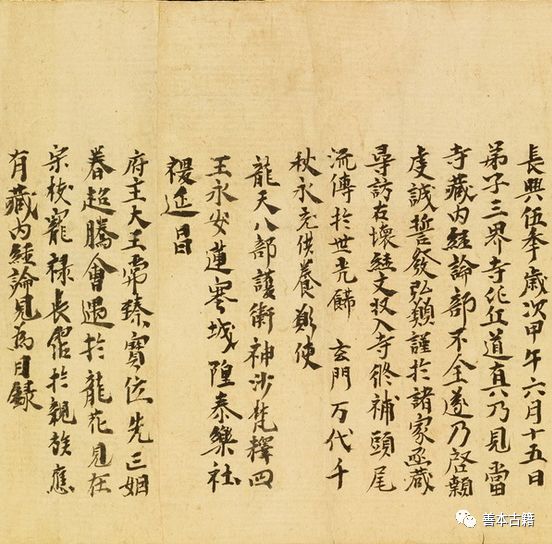 長興伍季歲次甲午六月十五日
弟子三界寺比丘道真乃見當
寺藏內經論部不全遂乃啓顙
虔誠誓發弘願謹於諸家函藏
尋訪古壞經文収入寺修補頭尾
流傳於世光飾 玄門万代千
秋永充供養願使
龍天八部護衛神沙梵釋四
王永安蓮塞城隍泰樂社
稷延昌
府主大王常臻寶位先亡姻
眷超騰會遇於龍花見在
宗枝寵祿長霑於親族應
有藏內經論見為目錄
善本古籍